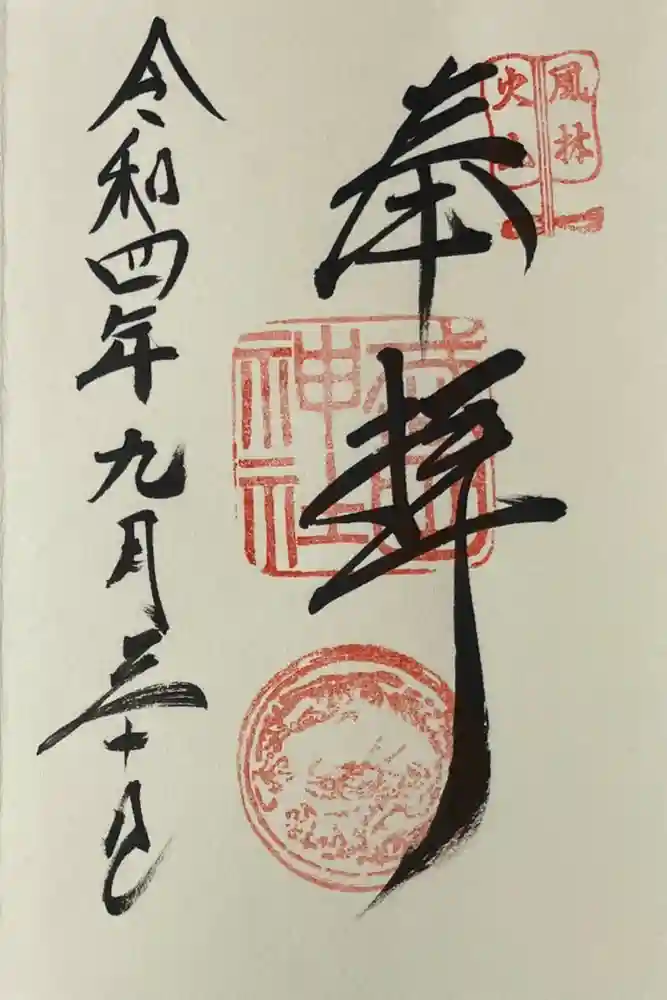 風林
火山
奉拝
武田
神社
令和四年九月三十日